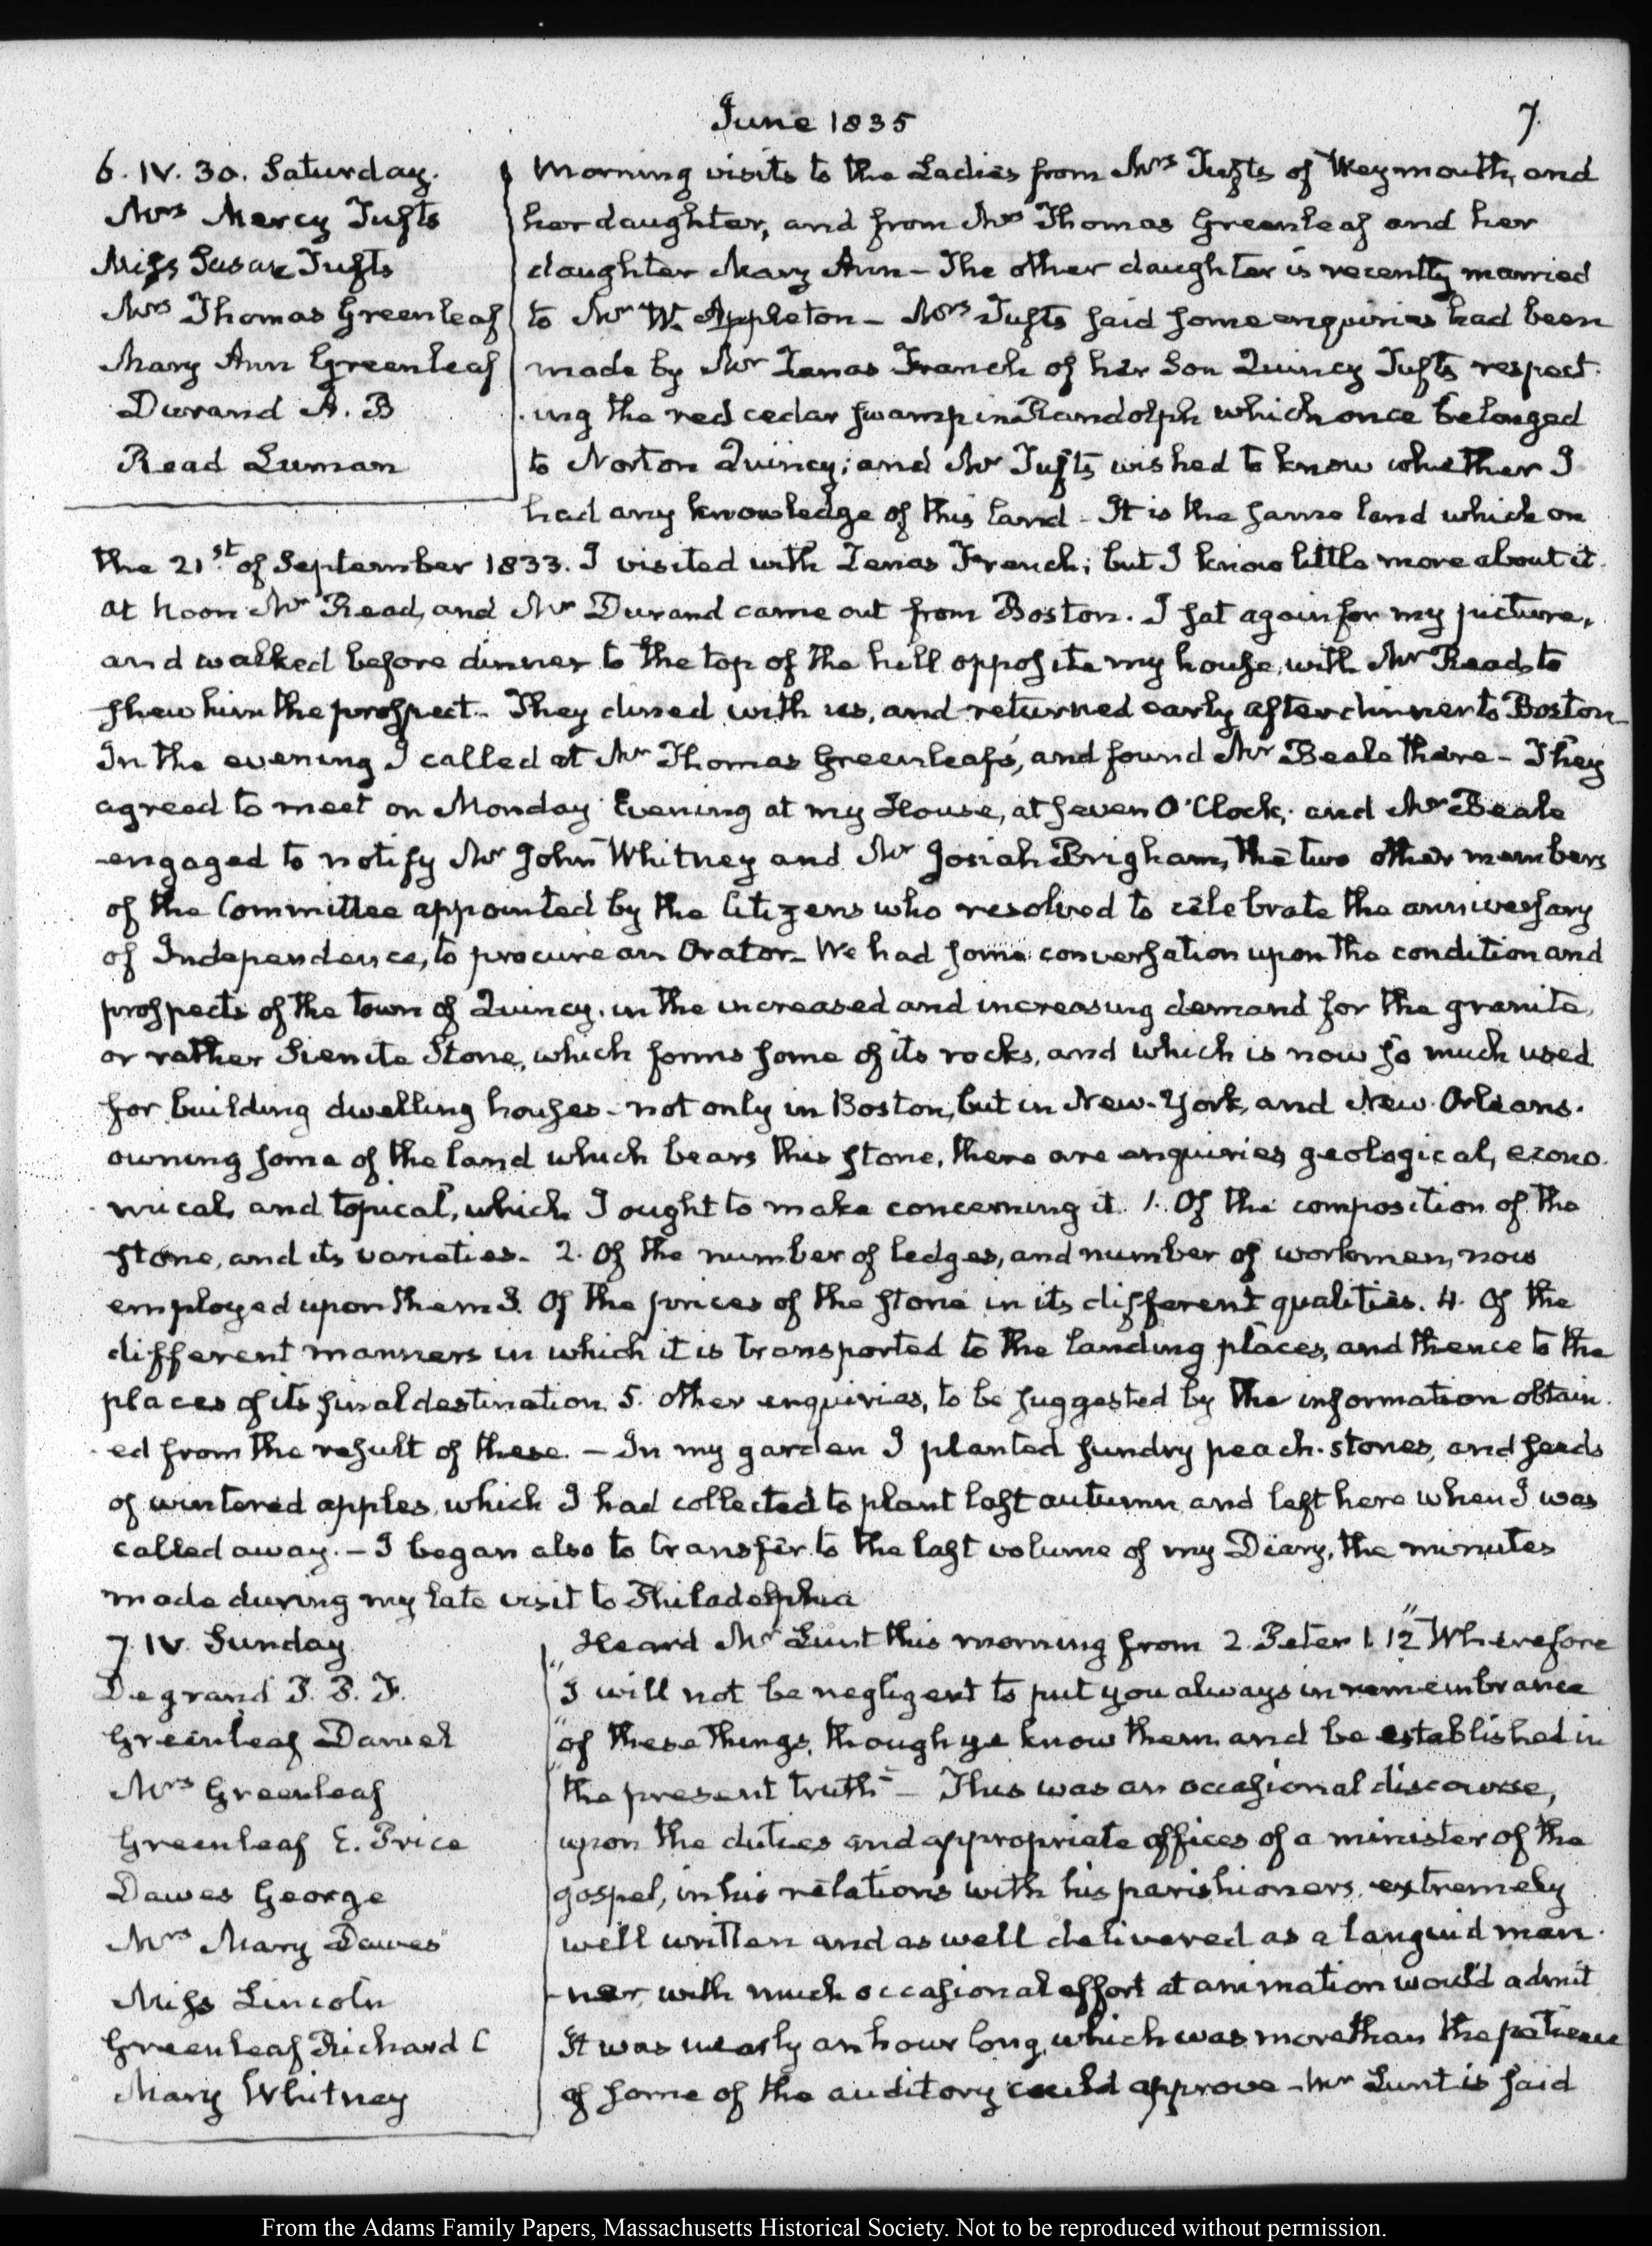 June 1835
7.
6. IV. 30. Saturday.
Mrs Mercy Tufts
Miss Susan Tufts
Mrs Thomas Greenleaf
Mary Ann Greenleaf
Durand A. B
Read Luman
Morning visits to the Ladies from Mrs Tufts of Weymouth, and
her daughter, and from Mrs Thomas Greenleaf and her
daughter Mary Ann – The other daughter is recently married
to Mr W. Appleton – Mrs Tufts said some enquiries had been
made by Mr Zenas French of her Son Quincy Tufts respect-
-ing the red cedar swamp in Randolph which once belonged
to Norton Quincy; and Mr Tufts wished to know whether I
had any knowledge of this land – It is the same land which on
the 21st of September 1833. I visited with Zenas French; but I know little more about it.
at noon Mr Read, and Mr Durand came out from Boston. I sat again for my picture,
and walked before dinner to the top of the hill opposite my house, with Mr Read to
shew him the prospect. They dined with us, and returned early after dinner to Boston –
In the evening I called at Mr Thomas Greenleaf's, and found Mr Beale there – They
agreed to meet on Monday Evening at my House, at seven O'Clock, and Mr Beale
engaged to notify Mr John Whitney and Mr Josiah Brigham, the two other members
of the Committee appointed by the Citizens who resolved to celebrate the anniversary
of Independence, to procure an Orator – We had some conversation upon the condition and
prospects of the town of Quincy, in the increased and increasing demand for the granite,
or rather Sienite Stone, which forms some of its rocks, and which is now so much used
for building dwelling houses – not only in Boston, but in New-York, and New Orleans.
owning some of the land which bears this stone, there are enquiries geological, econo-
-mical, and topical, which I ought to make concerning it. 1. Of the composition of the
stone, and its varieties. 2. Of the number of ledges, and number of workmen, now
employed upon them 3. Of the prices of the stone in its different qualities. 4. Of the
different manners in which it is transported to the landing places, and thence to the
places of its final destination. 5. Other enquiries, to be suggested by the information obtain-
-ed from the result of these. – In my garden I planted sundry peach-stones, and seeds
of wintered apples, which I had collected to plant last autumn, and left here when I was
called away. – I began also to transfer to the last volume of my Diary, the minutes
made during my late visit to Philadelphia
7 IV. Sunday
Degrand P. P. F.
Greenleaf Daniel
Mrs Greenleaf
Greenleaf E. Price
Dawes George
Mrs Mary Dawes
Miss Lincoln
Greenleaf Richard C
Mary Whitney
Heard Mr Lunt this morning from 2. Peter 1. 12 "Wherefore
"I will not be negligent to put you always in remembrance
"of these things, though ye know them and be established in
"the present truth" – This was an occasional discourse,
upon the duties and appropriate offices of a minister of the
gospel, in his relations with his parishioners, extremely
well written and as well delivered as a languid man-
-ner, with much occasional effort at animation would admit
It was nearly an hour long, which was more than the patience
of some of the auditory could approve – Mr Lunt is said
From the Adams Family Papers, Massachusetts Historical Society. Not to be reproduced without permission.